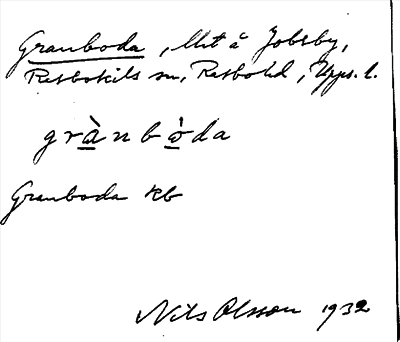 Granboda, lht å Jobsby,
Rasbokils sn, Rasbo hd, Upps. l.
grànbòda
Granboda kb
Nils Olsson 1932